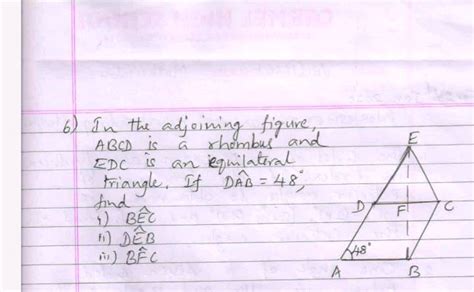 6) In the adjoining figure,
ABCD is a rhombus and
EDC is an equilateral
triangle. If DÂB = 48°,
find
i) BÊC
ii) DÊB
iii) BF̂C
E
D
F
C
48°
A
B